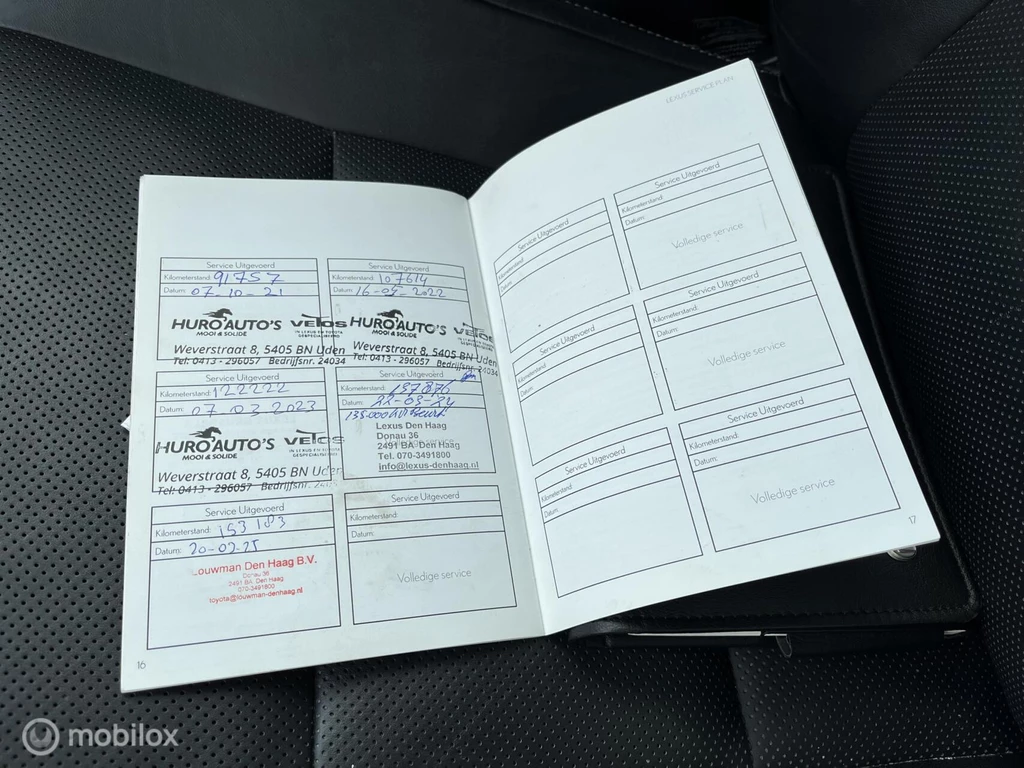 Service Uitgevoerd
Kilometerstand: 91757
Datum: 07-10-21
HURO AUTO'S VELOS
MOOI & SOLIDE IN LEXUS EN TOYOTA
GESPECIALISEERD
Weverstraat 8, 5405 BN Uden
Tel: 0413 - 296057 Bedrijfsnr. 24034
Service Uitgevoerd
Kilometerstand: 107614
Datum: 16-05-2022
HURO AUTO'S
MOOI & SOLIDE
Weverstraat 8, 5405 BN Uden
Tel: 0413 - 296057 Bedrijfsnr. 24034
Service Uitgevoerd
Kilometerstand: 122222
Datum: 07 03 2023
HURO AUTO'S VELOS
MOOI & SOLIDE IN LEXUS EN TOYOTA
GESPECIALISEERD
Weverstraat 8, 5405 BN Uden
Tel: 0413 - 296057 Bedrijfsnr.
Service Uitgevoerd
Kilometerstand: 137876
Datum: 22-03-24
135.000 Beurt
Lexus Den Haag
Donau 36
2491 BA Den Haag
Tel. 070-3491800
info@lexus-denhaag.nl
Service Uitgevoerd
Kilometerstand: 153183
Datum: 20-02-25
Louwman Den Haag B.V.
Donau 36
2491 BA Den Haag
070-3491800
toyota@louwman-denhaag.nl
Service Uitgevoerd
Kilometerstand:
Datum:
Volledige service
16
LEXUS SERVICE PLAN
Service Uitgevoerd
Kilometerstand:
Datum:
Service Uitgevoerd
Kilometerstand:
Datum:
Volledige service
Service Uitgevoerd
Kilometerstand:
Datum:
Service Uitgevoerd
Kilometerstand:
Datum:
Volledige service
Service Uitgevoerd
Kilometerstand:
Datum:
Service Uitgevoerd
Kilometerstand:
Datum:
Volledige service
17
mobilox